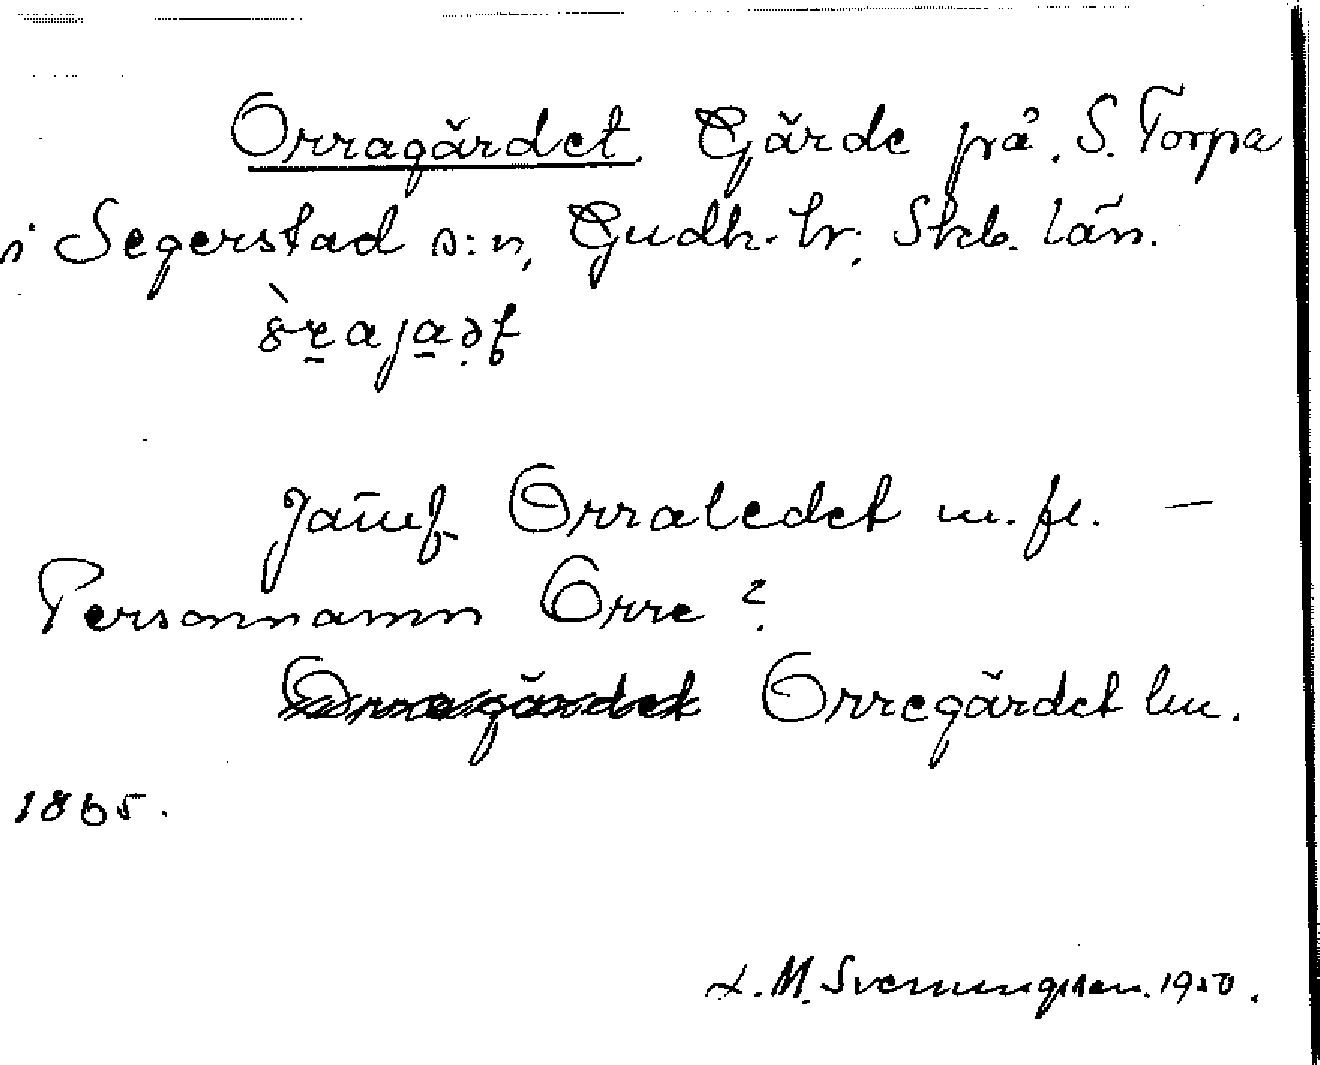 Orragärdet. Gärde på S. Torpa
i Segerstad s:n, Gudh. hr. Skb. län.
Jämf. Orraledet m. fl. —
Personnamn Orre?
Orregärdet lm.
1865.
L. M. Svenungsson. 1950.